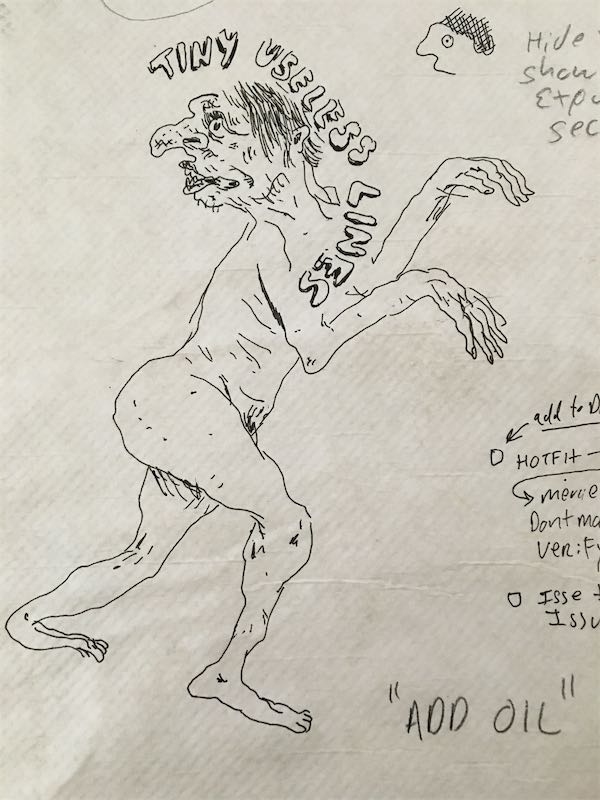 TINY USELESS LINES
Hide
show
sec
add to D
HOTFIX -
merge
Dont ma
Verify
Isse
Issu
"ADD OIL"